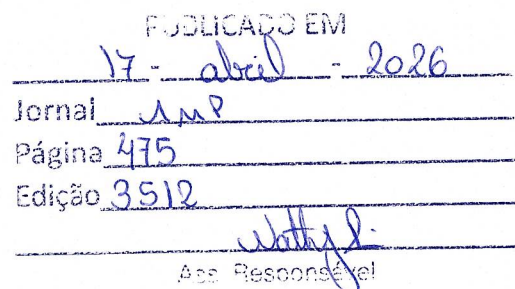 PUBLICADO EM
17 - abril - 2026
Jornal AMP
Página 475
Edição 3512
Ass. Responsável